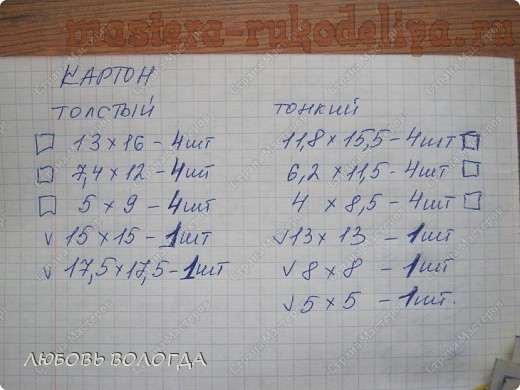 mastera-rukodeliya.ru
КАРТОН
ТОЛСТЫЙ
13 х 16 - 4шт
7,4 х 12 - 4шт
5 х 9 - 4шт
v 15 х 15 - 1шт
v 17,5 х 17,5 - 1шт
ТОНКИЙ
11,8 х 15,5 - 4шт
6,2 х 11,5 - 4шт
4 х 8,5 - 4шт
v 13 х 13 - 1шт
v 8 х 8 - 1шт
v 5 х 5 - 1шт.
ЛЮБОВЬ ВОЛОГДА